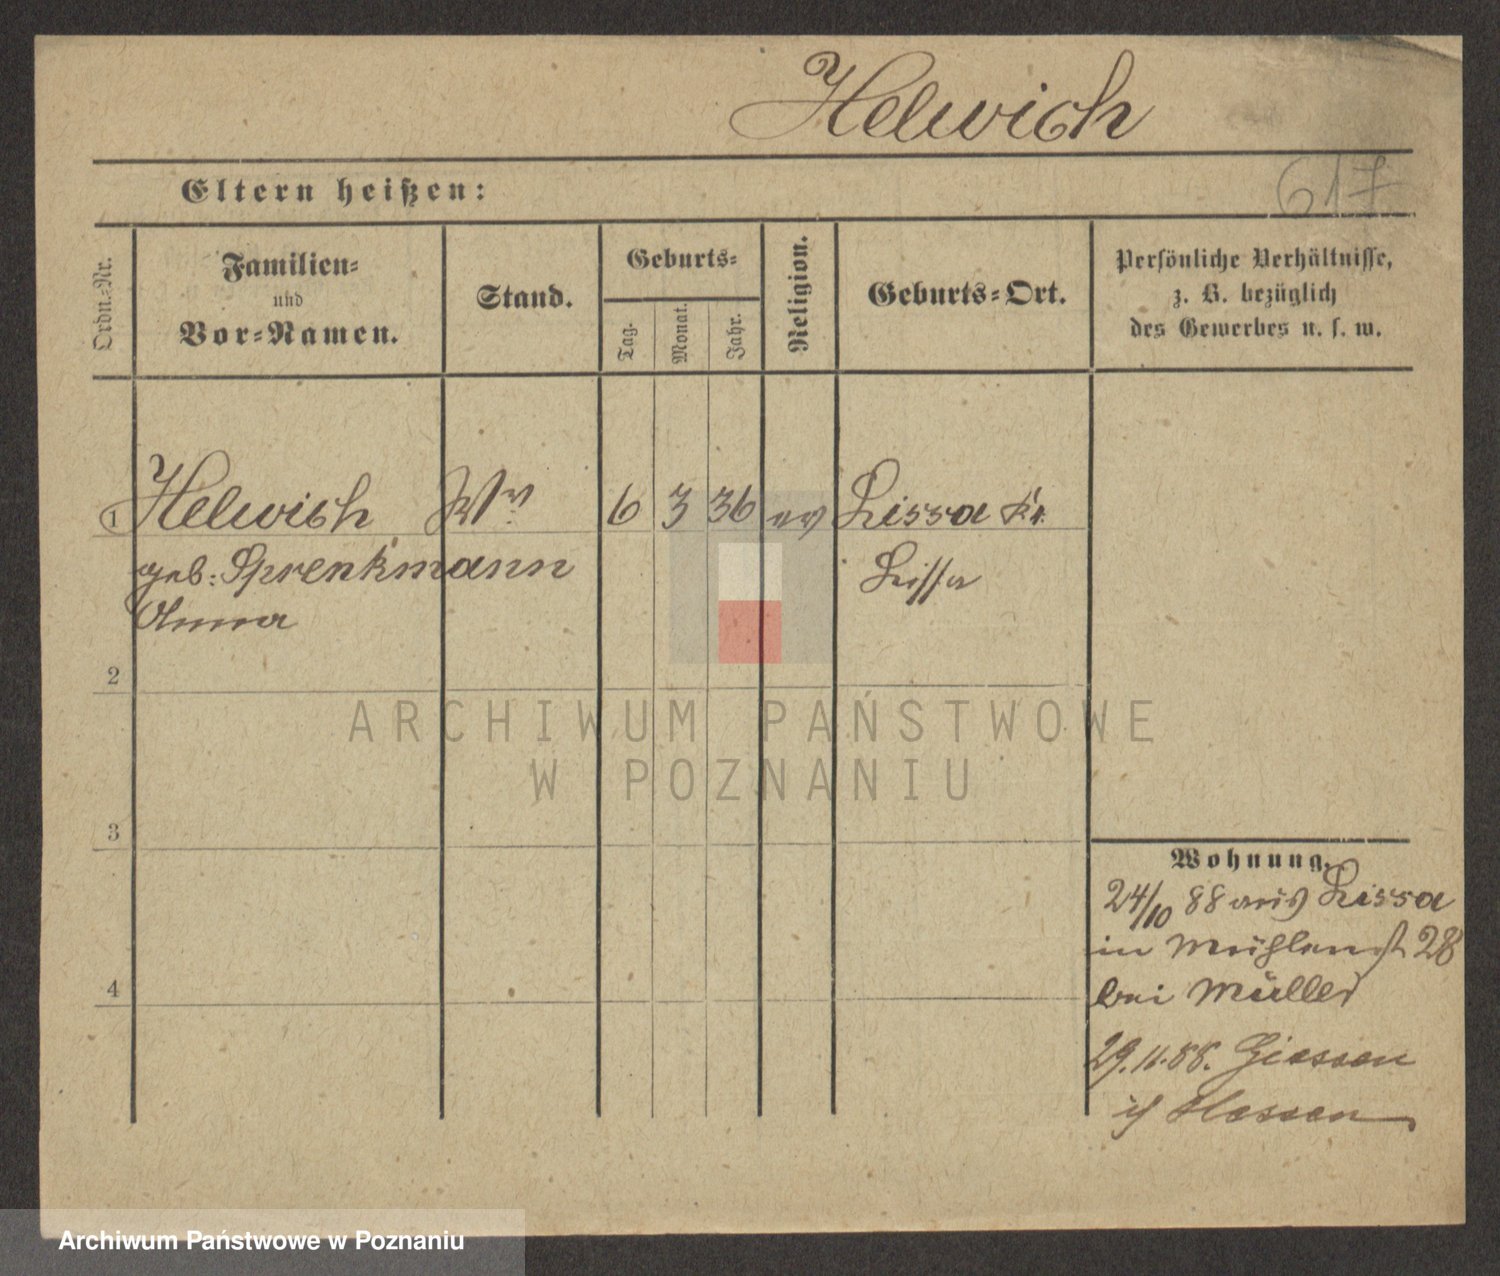 Helwich
617
Eltern heißen:
Ordn.-Nr.
Familien-
und
Vor-Namen.
Stand.
Geburts-
Tag.
Monat.
Jahr.
Religion.
Geburts-Ort.
Persönliche Verhältnisse,
z. B. bezüglich
des Gewerbes u. s. w.
1 Helwich Ww 6 3 36 ev Lissa Kr.
geb: Sprenkmann Lissa
Anna
2
ARCHIWUM PAŃSTWOWE
W POZNANIU
3
Wohnung.
24/10 88 aus Lissa
in Mühlenst 28
bei Müller
4
29.11.88. Giessen
i/ Hessen
Archiwum Państwowe w Poznaniu